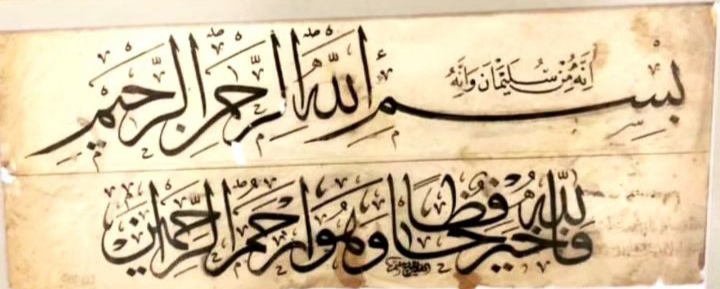 إنه من سليمان وإنه
بسم الله الرحمن الرحيم
فالله خير حافظا وهو أرحم الراحمين